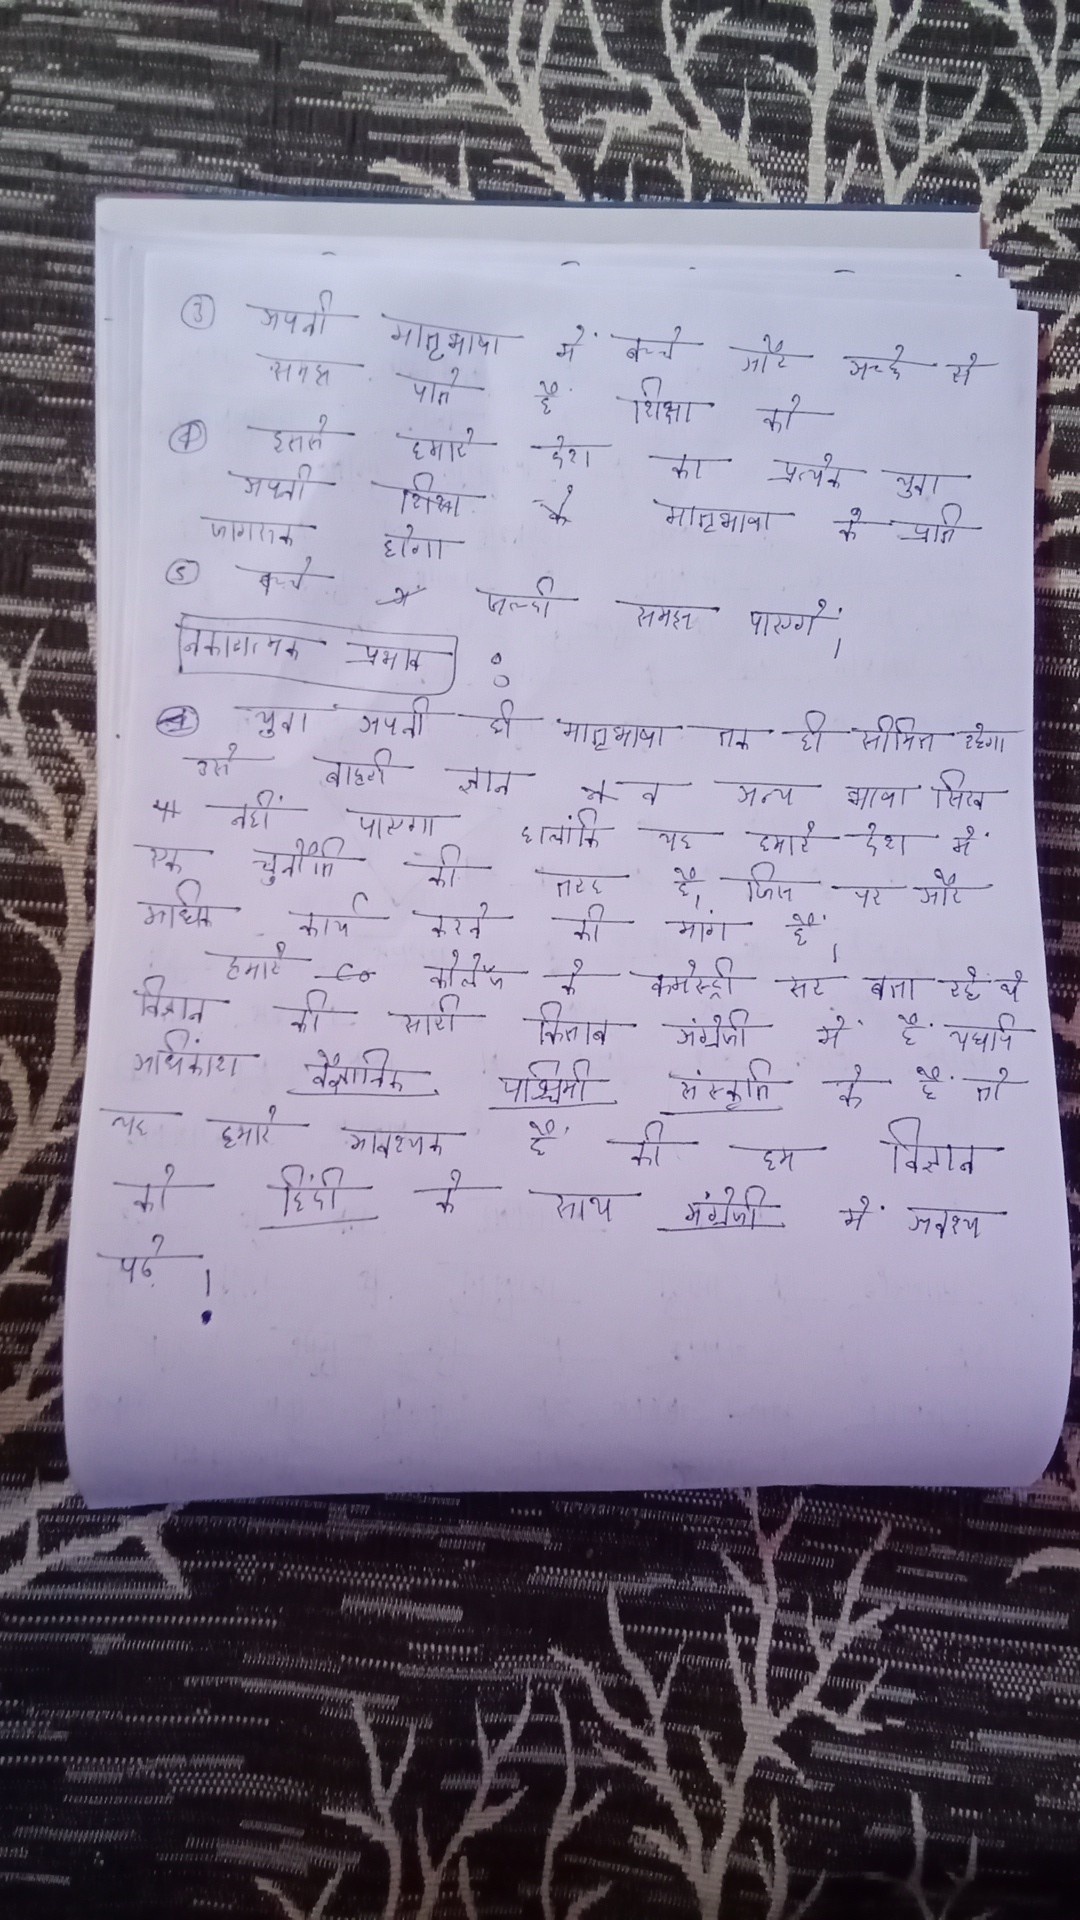 ③ अपनी मातृभाषा में बच्चे और अच्छे से
समझ पाते हैं शिक्षा को
④ इससे हमारे देश का प्रत्येक युवा
अपनी शिक्षा के मातृभाषा के प्रति
जागरूक होगा
⑤ बच्चे जल्दी समझ पाएगें।
नकारात्मक प्रभाव :
युवा अपनी ही मातृभाषा तक ही सीमित रहेगा
उसे बाहरी ज्ञान व अन्य भाषा सिख
नहीं पाएगा हालांकि यह हमारे देश में
एक चुनौति की तरह है, जिस पर और
अधिक कार्य करने की मांग हैं।
हमारे कॉलेज के कमेस्ट्री सर बता रहे थे
विज्ञान की सारी किताब अंग्रेजी में हैं यद्यपि
अधिकांश वैज्ञानिक पश्चिमी संस्कृति के हैं तो
यह हमारे आवश्यक हैं की हम विज्ञान
को हिंदी के साथ अंग्रेजी में अवश्य
पढे।